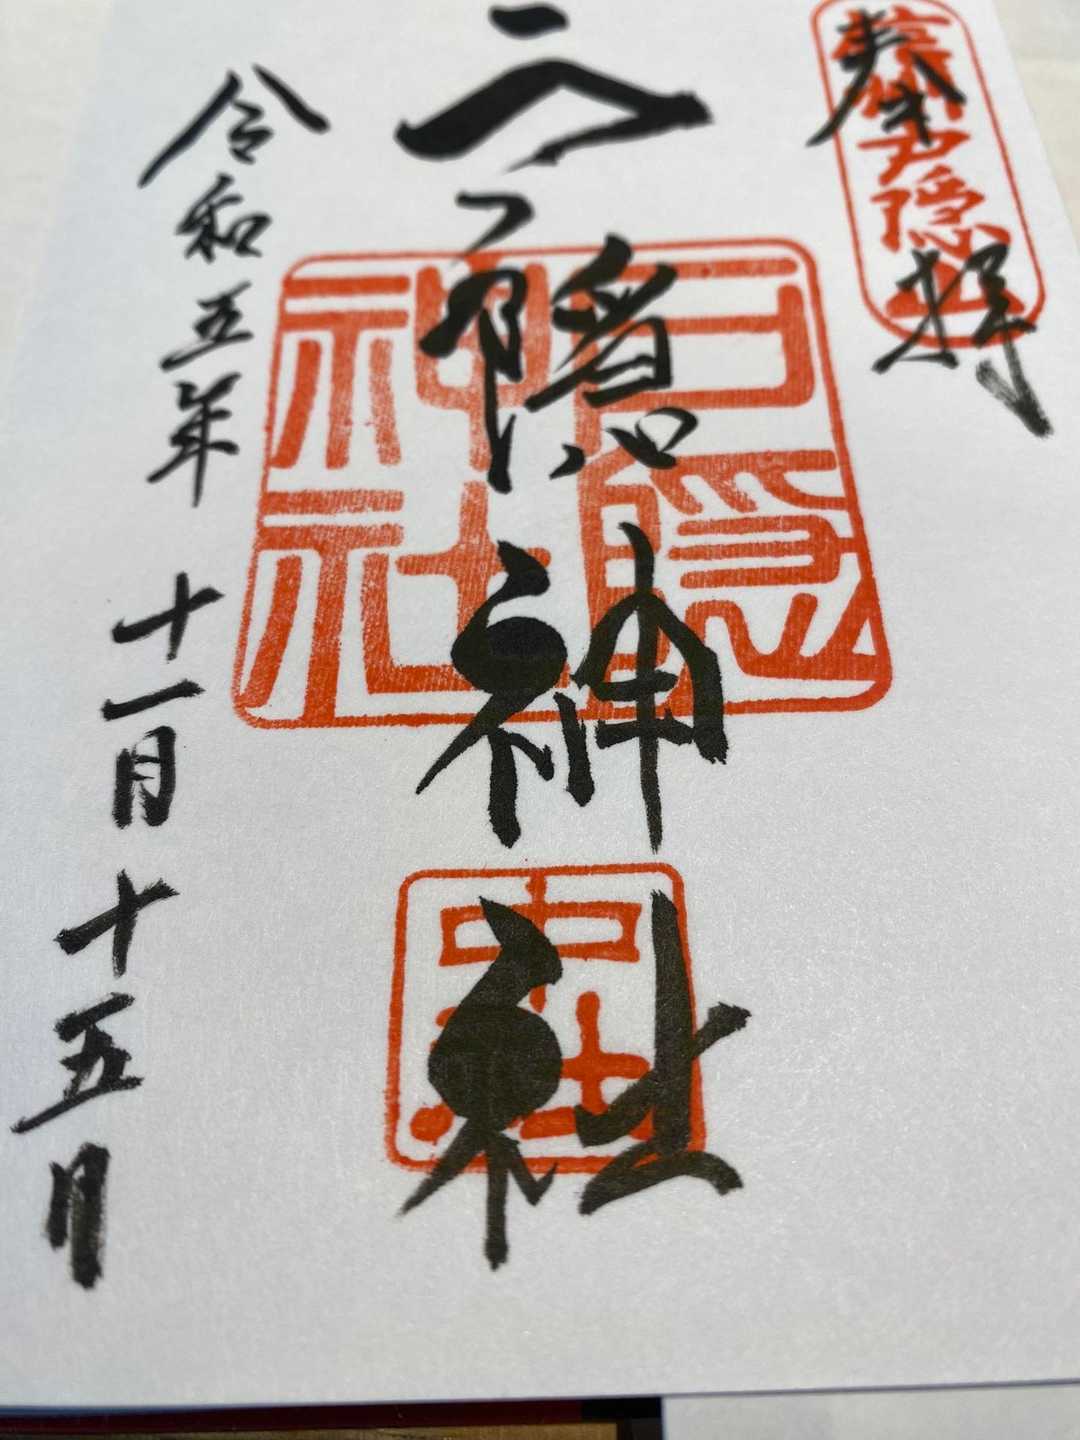 奉拝
信州戸隠山
戸隠神社
戸隠神社
中社
令和五年十一月十五日